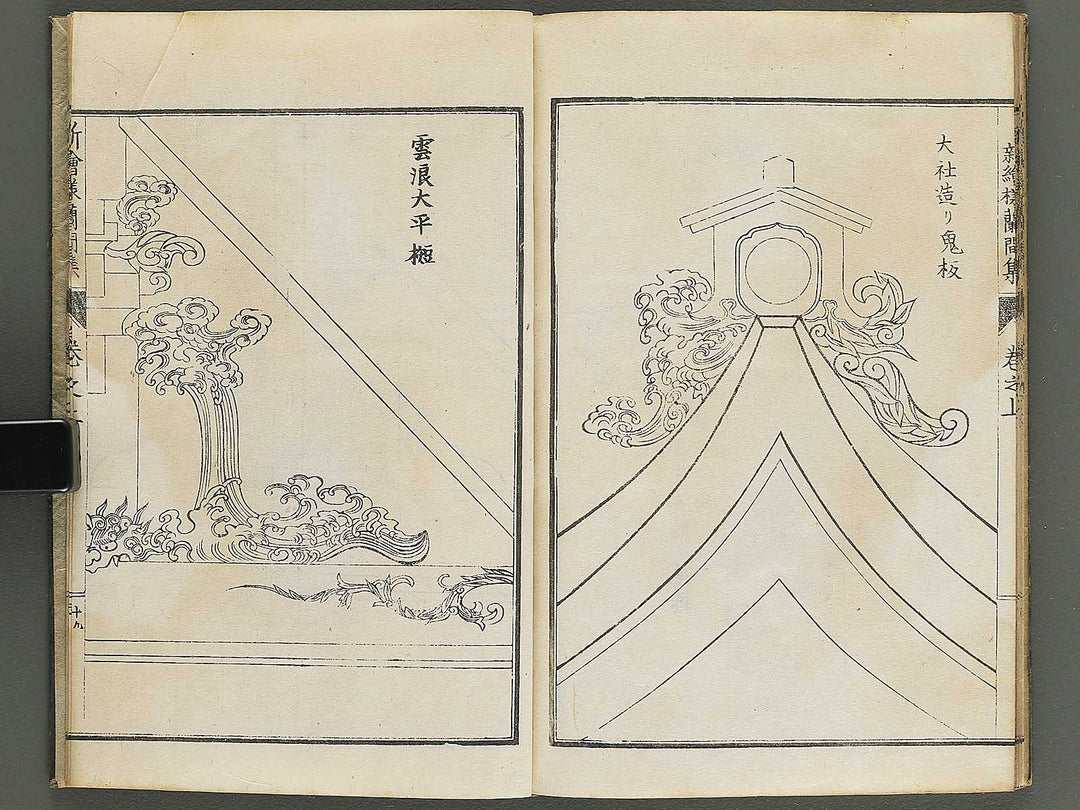 新繪様欄間集
巻之上
大社造り鬼板
雲浪大平榧
新繪様欄間集
巻之上
十九